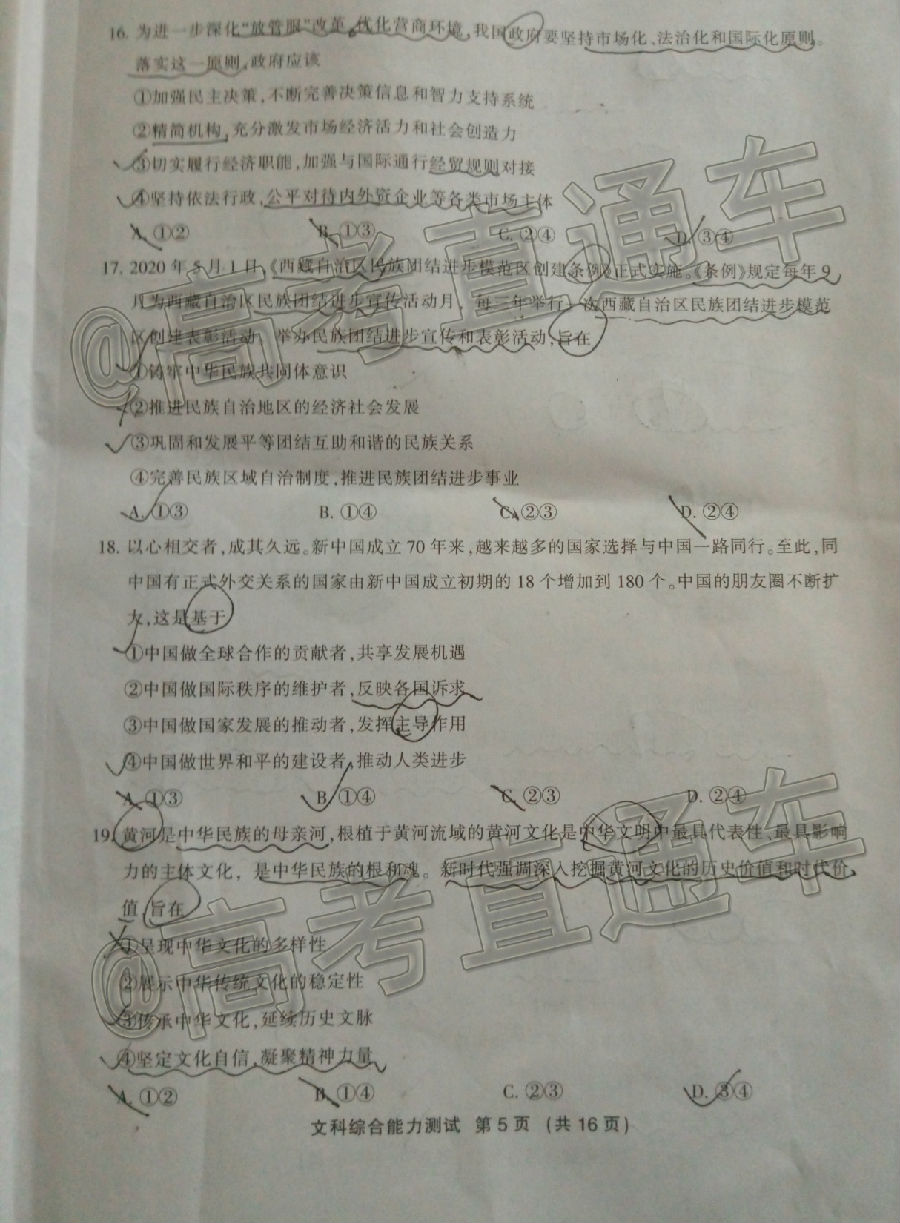 16. 为进一步深化“放管服”改革,优化营商环境,我国政府要坚持市场化、法治化和国际化原则。
落实这一原则,政府应该
①加强民主决策,不断完善决策信息和智力支持系统
②精简机构,充分激发市场经济活力和社会创造力
③切实履行经济职能,加强与国际通行经贸规则对接
④坚持依法行政,公平对待内外资企业等各类市场主体
A. ①② B. ①③ C. ②④ D. ③④
17. 2020年5月1日,《西藏自治区民族团结进步模范区创建条例》正式实施。《条例》规定每年9
月为西藏自治区民族团结进步宣传活动月,每三年举行一次西藏自治区民族团结进步模范
区创建表彰活动。举办民族团结进步宣传和表彰活动,旨在
①铸牢中华民族共同体意识
②推进民族自治地区的经济社会发展
③巩固和发展平等团结互助和谐的民族关系
④完善民族区域自治制度,推进民族团结进步事业
A. ①③ B. ①④ C. ②③ D. ②④
18. 以心相交者,成其久远。新中国成立70年来,越来越多的国家选择与中国一路同行。至此,同
中国有正式外交关系的国家由新中国成立初期的18个增加到180个。中国的朋友圈不断扩
大,这是基于
①中国做全球合作的贡献者,共享发展机遇
②中国做国际秩序的维护者,反映各国诉求
③中国做国家发展的推动者,发挥主导作用
④中国做世界和平的建设者,推动人类进步
A. ①③ B. ①④ C. ②③ D. ②④
19. 黄河是中华民族的母亲河,根植于黄河流域的黄河文化是中华文明中最具代表性、最具影响
力的主体文化,是中华民族的根和魂。新时代强调深入挖掘黄河文化的历史价值和时代价
值,旨在
①呈现中华文化的多样性
②展示中华传统文化的稳定性
③传承中华文化,延续历史文脉
④坚定文化自信,凝聚精神力量
A. ①② B. ①④ C. ②③ D. ③④
文科综合能力测试 第5页 (共16页)
@高考直通车
@高考直通车